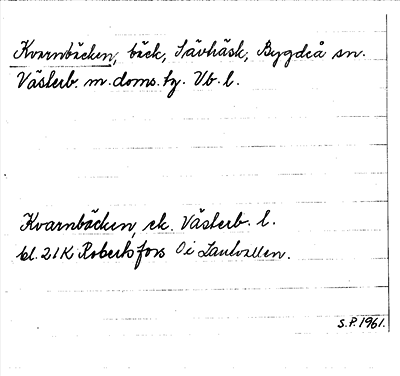 Kvarnbäcken, bäck, Sävträsk, Bygdeå sn.
Västerb. m. doms. fg. Vb. l.
Kvarnbäcken, ek. Västerb. l.
bl. 21K Robertsfors Oi
S.P. 1961.